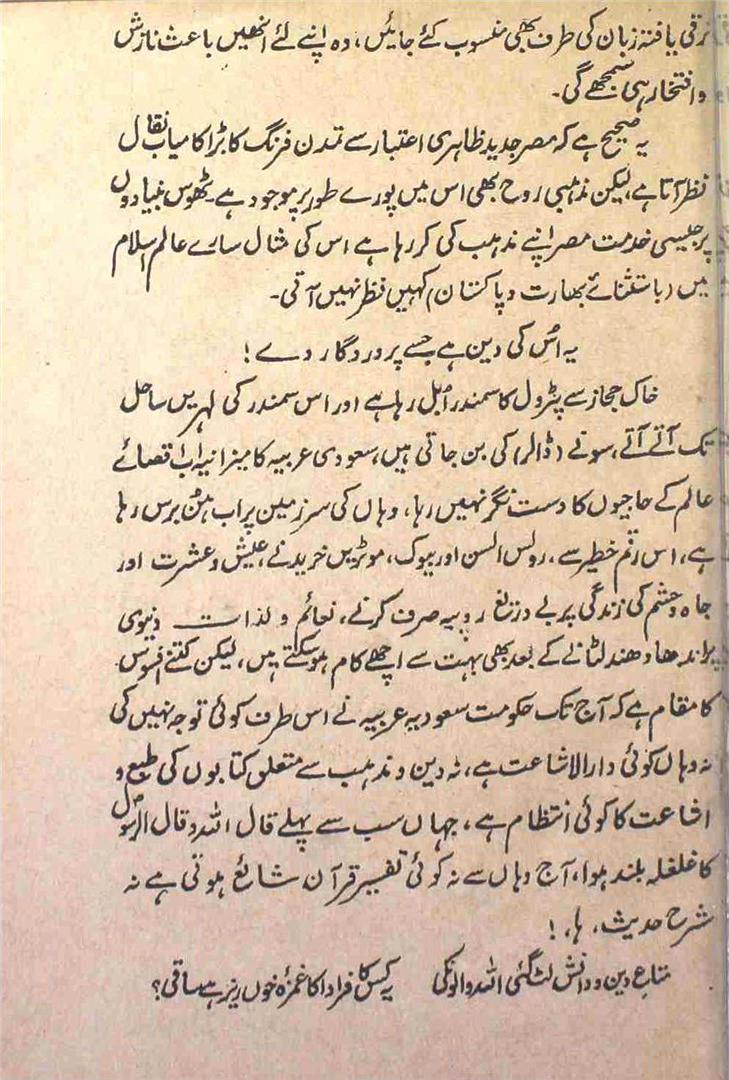 ترقی یافتہ زبان کی طرف بھی منسوب کئے جائیں، وہ اپنے لئے انھیں باعث نازش
و افتخار ہی سمجھے گی۔
یہ صحیح ہے کہ مصر جدید ظاہری اعتبار سے تمدن فرنگ کا بڑا کامیاب نقال
نظر آتا ہے، لیکن مذہبی روح بھی اس میں پورے طور پر موجود ہے۔ ٹھوس بنیادوں
پر جیسی خدمت مصر اپنے مذہب کی کر رہا ہے اس کی مثال سارے عالم اسلام
میں (باستثنائے بھارت و پاکستان) کہیں نظر نہیں آتی۔
یہ اُس کی دین ہے جسے پروردگار دے!
خاک حجاز سے پٹرول کا سمندر اُبل رہا ہے اور اس سمندر کی لہریں ساحل
تک آتے آتے، سونے (ڈالر) کی بن جاتی ہیں، سعودی عربیہ کا میزانیہ اب اقصائے
عالم کے حاجیوں کا دست نگر نہیں رہا، وہاں کی سرزمین پر اب ہُن برس رہا
ہے، اس رقم خطیر سے، رولس السن اور بیوک، موٹریں خریدنے، عیش و عشرت اور
جاہ و حشم کی زندگی پر بے دریغ روپیہ صرف کرنے، نعائم و لذات دنیوی
پر اندھا دھند لٹانے کے بعد بھی بہت سے اچھے کام ہو سکتے ہیں، لیکن کتنے افسوس
کا مقام ہے کہ آج تک حکومت سعودیہ عربیہ نے اس طرف کوئی توجہ نہیں کی
نہ وہاں کوئی دارالاشاعت ہے، نہ دین و مذہب سے متعلق کتابوں کی طبع و
اشاعت کا کوئی انتظام ہے، جہاں سب سے پہلے قال اللہ و قال الرسولؐ
کا غلغلہ بلند ہوا، آج وہاں سے نہ کوئی تفسیر قرآن شائع ہوتی ہے نہ
شرح حدیث، ہا، !
متاعِ دین و دانش لٹ گئی اللہ والوں کی یہ کس کافر ادا کا غمزۂ خوں ریز ہے ساقی؟